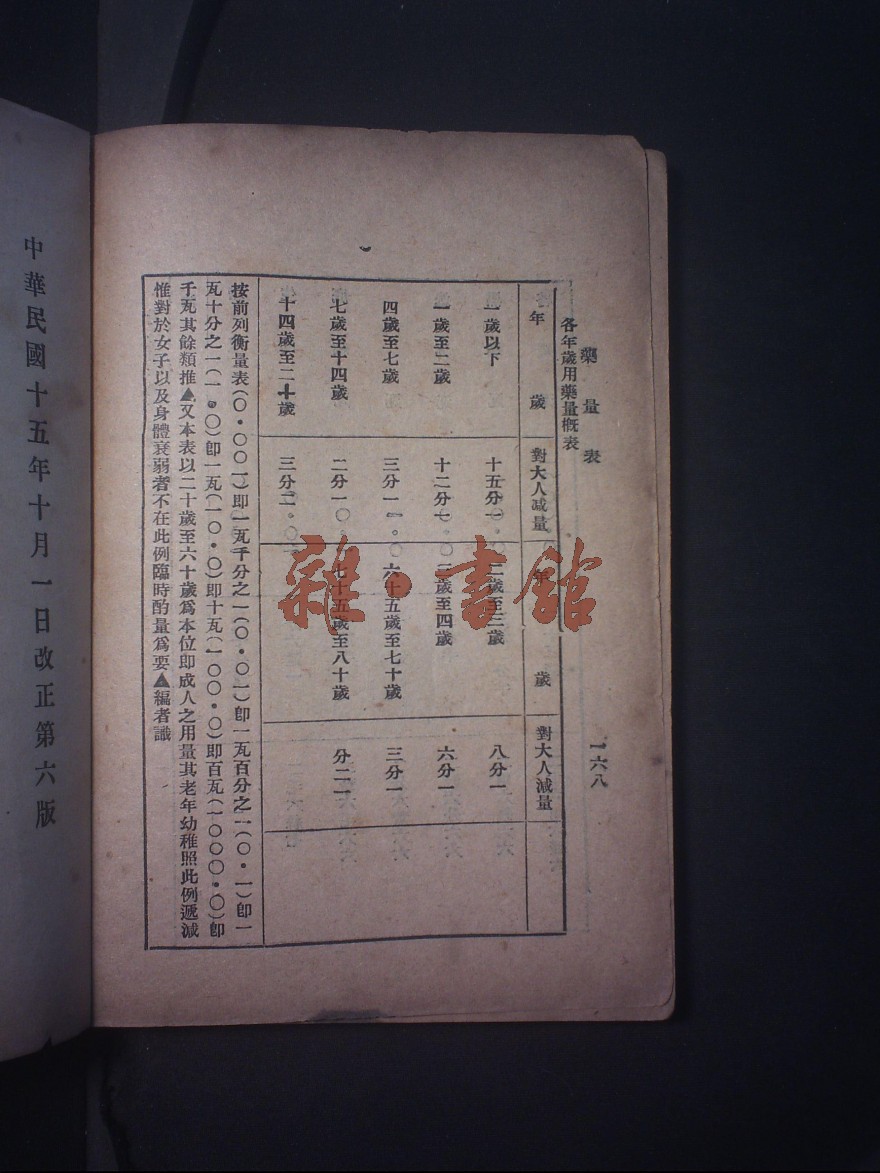 藥量表
一六八
各年歲用藥量概表
年歲
對大人減量
年歲
對大人減量
一歲以下
十五分一
二歲至三歲
八分一
一歲至二歲
十二分一
三歲至四歲
六分一
四歲至七歲
三分一
六十五歲至七十歲
三分一
七歲至十四歲
二分一
七十五歲至八十歲
分二一
十四歲至二十歲
三分二
按前列衡量表(〇・〇〇一)即一瓦千分之一(〇・〇一)即一瓦百分之一(〇・一)即一
瓦十分之一(一・〇)即一瓦(一〇・〇)即十瓦(一〇〇・〇)即百瓦(一〇〇〇・〇)即
千瓦其餘類推▲又本表以二十歲至六十歲爲本位即成人之用量其老年幼稚照此例遞減
惟對於女子以及身體衰弱者不在此例臨時酌量爲要▲編者識
中華民國十五年十月一日改正第六版
雜・書館